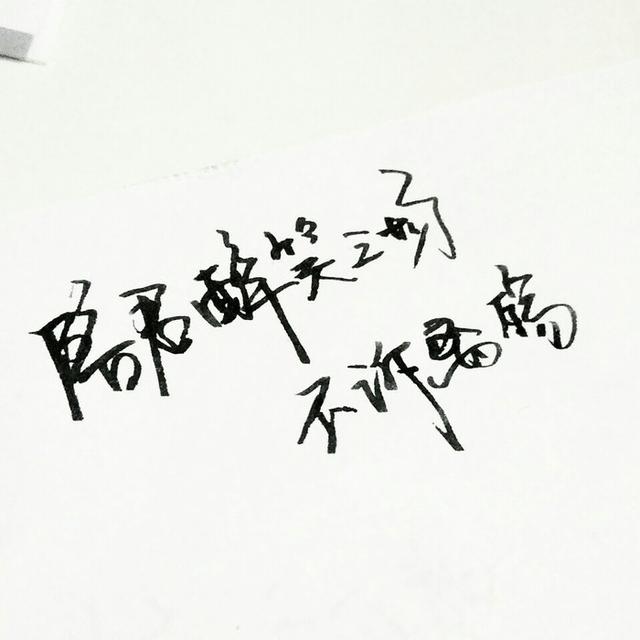 陪君醉笑三场
不诉离殇